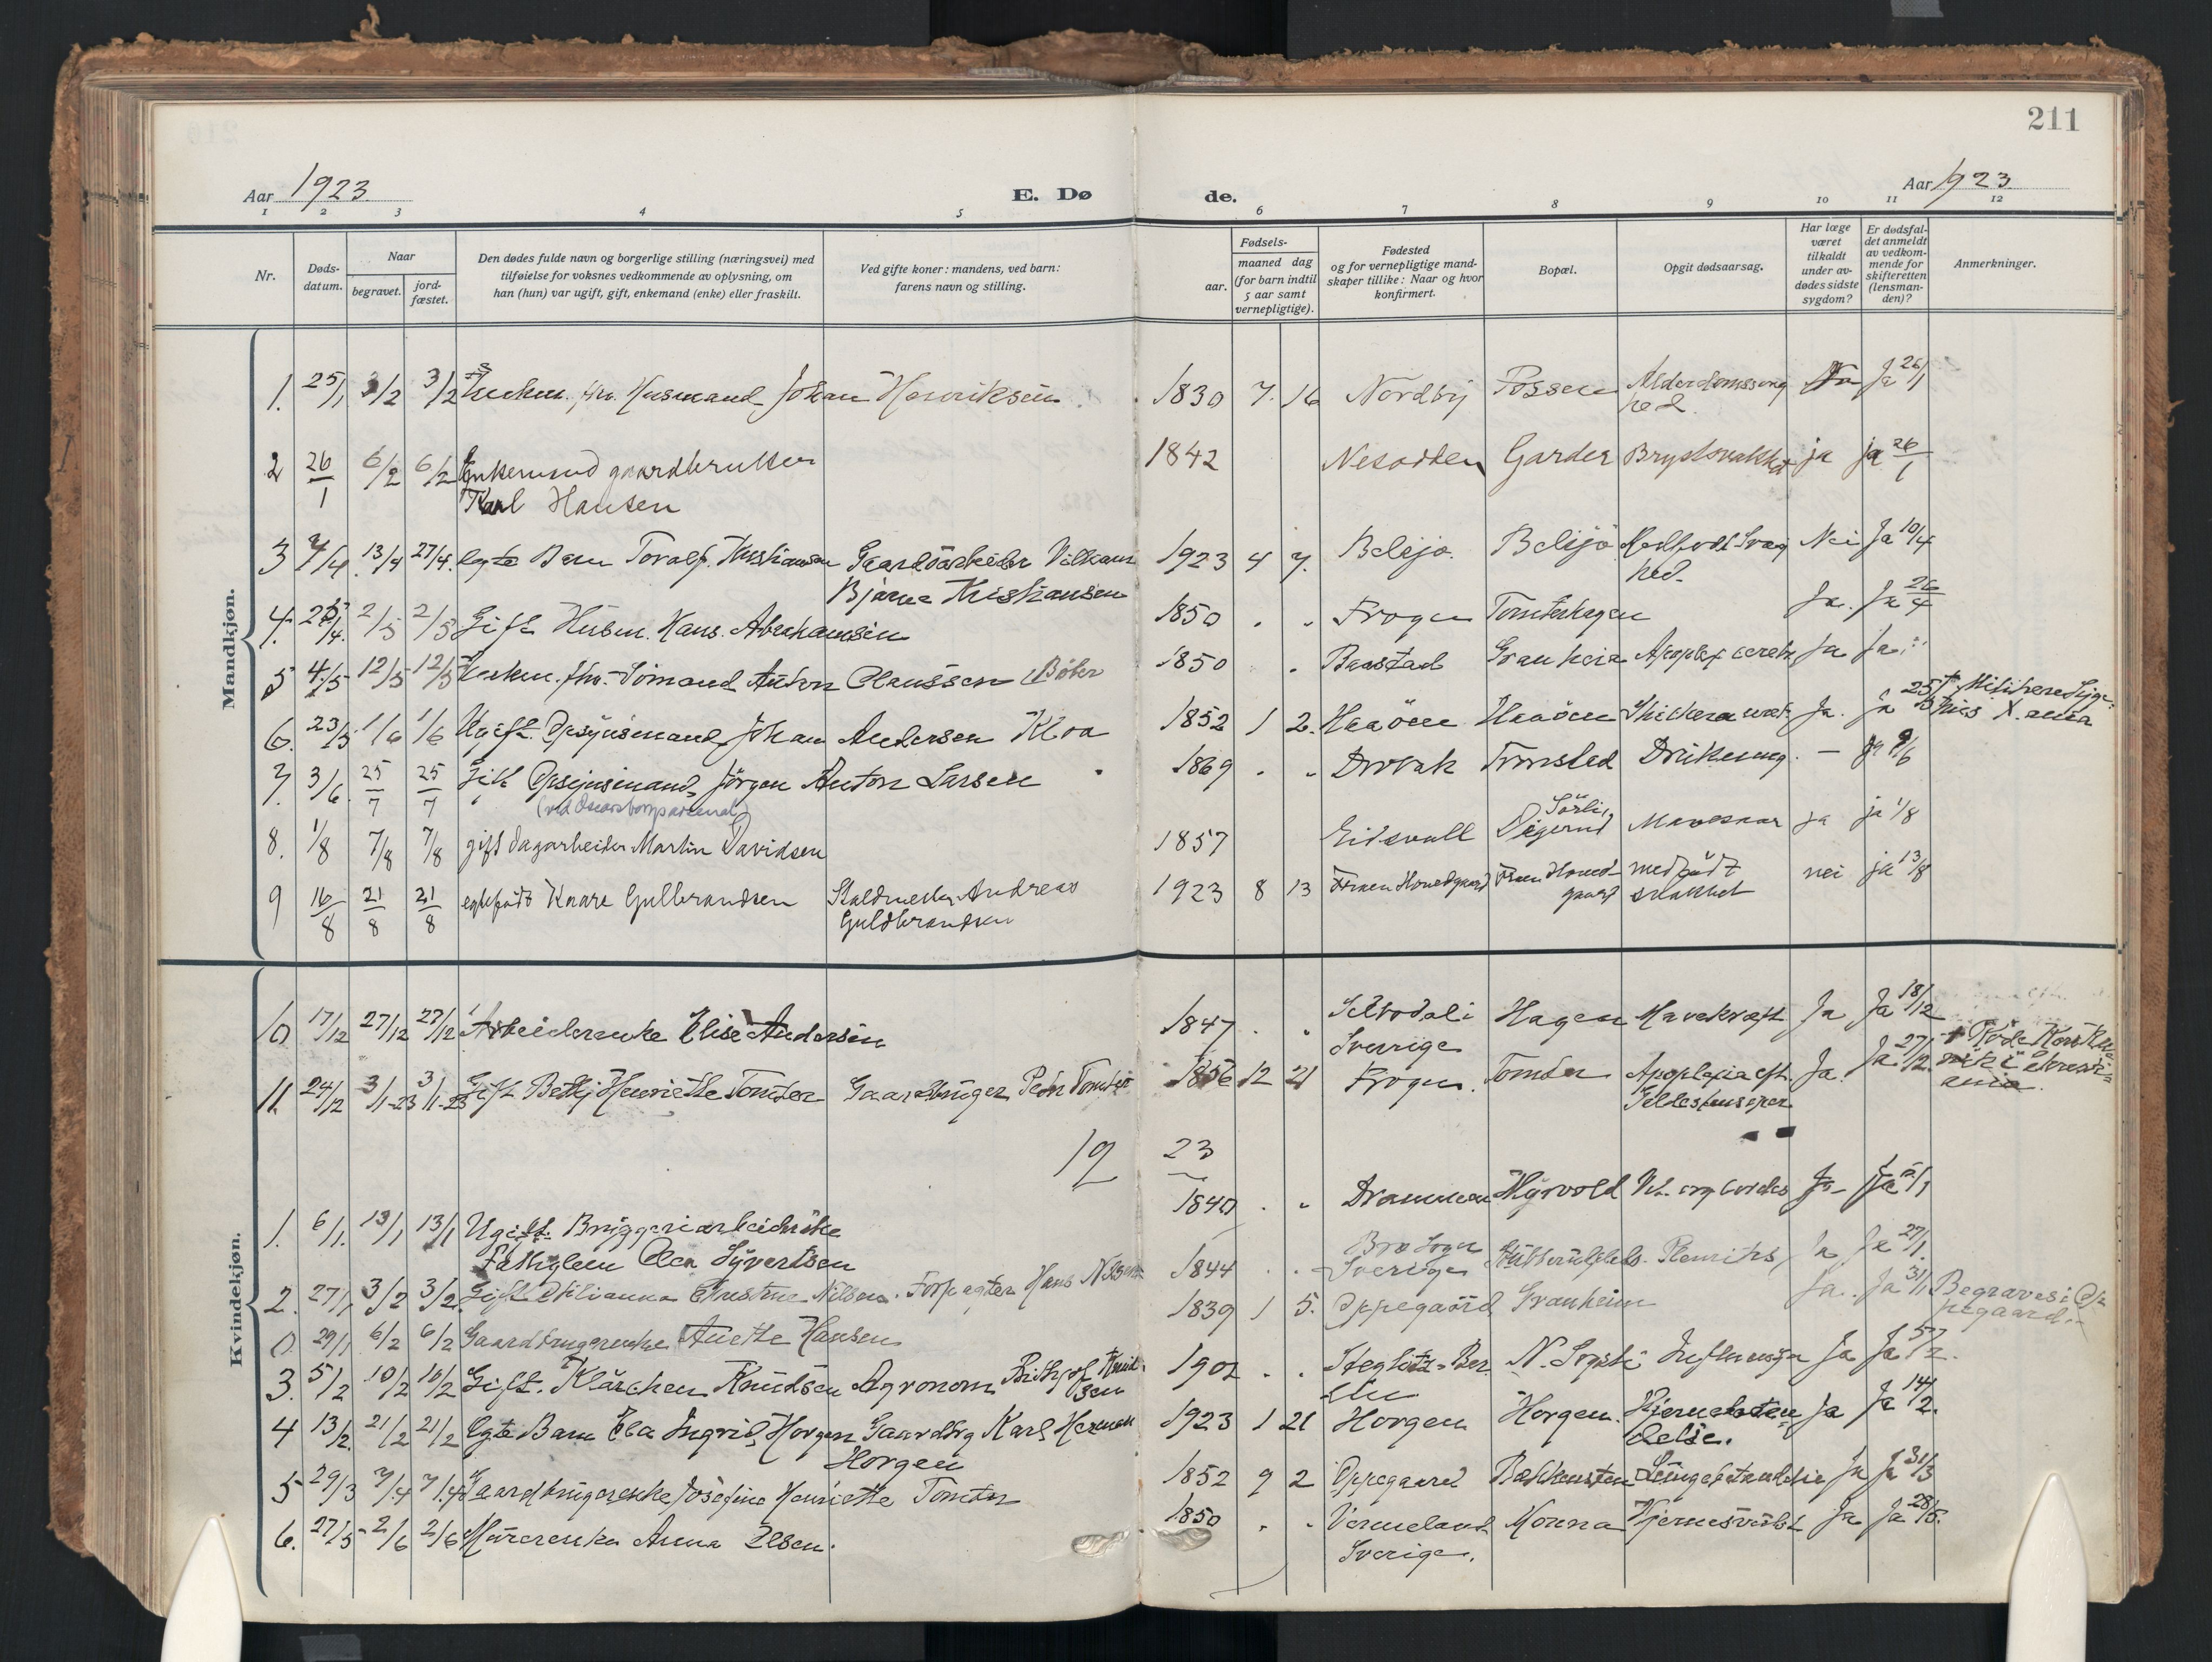 211
Aar 1923.
E. Dø de.
Aar 1923
1 2 3 4 5 6 7 8 9 10 11 12
Nr.
Døds-
datum.
Naar
begravet.
jord-
fæstet.
Den dødes fulde navn og borgerlige stilling (næringsvei) med
tilføielse for voksnes vedkommende av oplysning, om
han (hun) var ugift, gift, enkemand (enke) eller fraskilt.
Ved gifte koner: mandens, ved barn:
farens navn og stilling.
Fødsels-
aar.
maaned dag
(for barn indtil
5 aar samt
vernepligtige).
Fødested
og for vernepligtige mand-
skaper tillike: Naar og hvor
konfirmert.
Bopæl.
Opgit dødsaarsag.
Har læge
været
tilkaldt
under av-
dødes sidste
sygdom?
Er dødsfal-
det anmeldt
av vedkom-
mende for
skifteretten
(lensman-
den)?
Anmerkninger.
Mandkjøn.
1. 25/1 3/2 3/2 fhv. Husmand Johan Henriksen 1830 7. 16 Nordby Fossen Alderdomssvag Ja 26/1
hed.
2 26/1 6/2 6/2 Enkemand gaardbruker 1842 Nesodden Garder ja ja 26/1
Karl Hansen
3 7/4 13/4 27/4. egte Barn Toralf Kristiansen Gaardsarbeider 1923 4 7. Belsjø. Belsjø Nei Ja 10/4
Bjarne Kristiansen hed.
4. 25/4. 2/5 2/5 Gift Husm. Hans Abrahamsen 1850 . . Frogn Tomterhagen Ja. Ja 26/4
5 4/5 12/5 12/5 fhv. Sømand Anton Claussen 1850 . Baastad Granheim Ja Ja
6. 23/5 1/6 1/6 Ugift Opsynsmand Johan Andersen Kloa 1852 1 2. Haaøen Haaøen Ja. Ja 25/5
7. 3/6. 25/7 25/7 Gift Opsynsmand Jørgen Anton Larsen 1869 . . Drøbak Tronstad Drukning. — ja 9/6
(ved Oscarsborgs arsenal)
8. 1/8 7/8 7/8 gift dagarbeider Martin Davidsen 1857 Eidsvoll Sørli, Digerud Mavesaar ja ja 1/8
9 16/8 21/8 21/8 egtefødt Kaare Gulbrandsen Staldmester Andreas 1923 8 13 Froen Hovedgaard Froen Hoved- medfødt nei ja 13/8
Guldbrandsen gaard svakhet
Kvindekjøn.
10 17/12 27/12 27/12 Arbeiderenke Elise Andersen 1847 . . Hagen Mavekræft Ja Ja 18/12
Sverrige
11. 24/12 3/1-23 3/1-23 Gift Bethy Henriette Tomter Gaardbruger Peder Tomter 1856 12 21 Frogn. Tomter Apoplexia eft. Ja. Ja 27/12.
1923
1. 6/1. 13/1 13/1 Ugift Bryggeriarbeiderske 1840 . . Drammen Ja Ja
Olea Syvertsen
2. 27/1 3/2 3/2. Gift Nilsen. Forpagter Hans Nilsen 1844 . . Sverige Ja 27/1.
0 29/1 6/2 6/2 Gaardbrugerenke Anette Hansen 1839 1 5. Oppegaard Granheim Ja. Ja 31/1 Begraves i Op
pegaard.
3. 5/2 10/2 10/2 Gift. Klärchen Knudsen Agronom Knud- 1902 . . Steglitz-Ber Influensa Ja Ja 5/2.
sen lin
4 13/2. 21/2 21/2 Egte Barn Eva Ingrid Horgen Gaardbrg Karl Herman 1923 1 21 Horgen Horgen. Ja Ja 14/2.
Horgen delse.
5 29/3 7/4 7/4 Gaardbrugerenke Josefine Henriette Tomter 1852 9 2 Oppegaard Ja Ja 31/3
6. 27/5 2/6 2/6 Murerenke Anna Olsen. 1850 . . Vermeland Ja Ja 28/5.
Sverige.